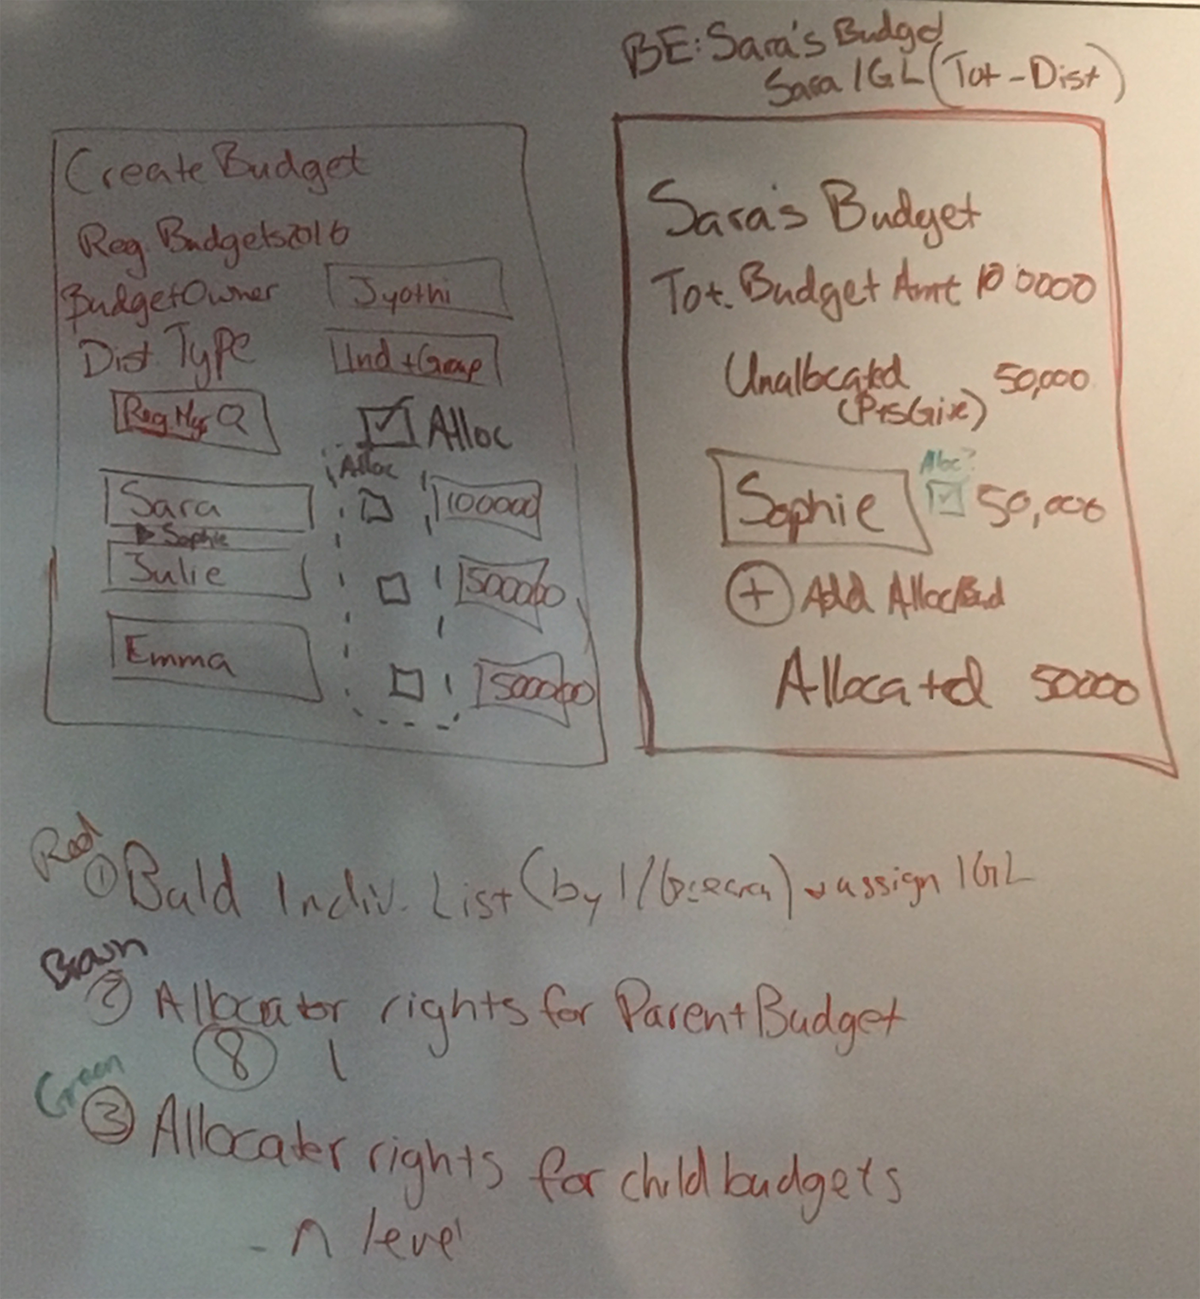 BE: Sara's Budget
Sara IGL (Tot - Dist)
Create Budget
Reg. Budgets 2016
Budget Owner Jyothi
Dist. Type Ind + Group
Reg Mgr Alloc
Alloc
Sara 100000
Sophie
Julie 500000
Emma 500000
Sara's Budget
Tot. Budget Amt 100000
Unallocated 50,000
(PtsGive)
Aloc?
Sophie 50,000
+ Add Alloc Bud
Allocated 50000
Red
① Build Indiv. List (by I/ assign IGL
Brown
② Allocator rights for Parent Budget
8 1
Green
③ Allocater rights for child budgets
- n level